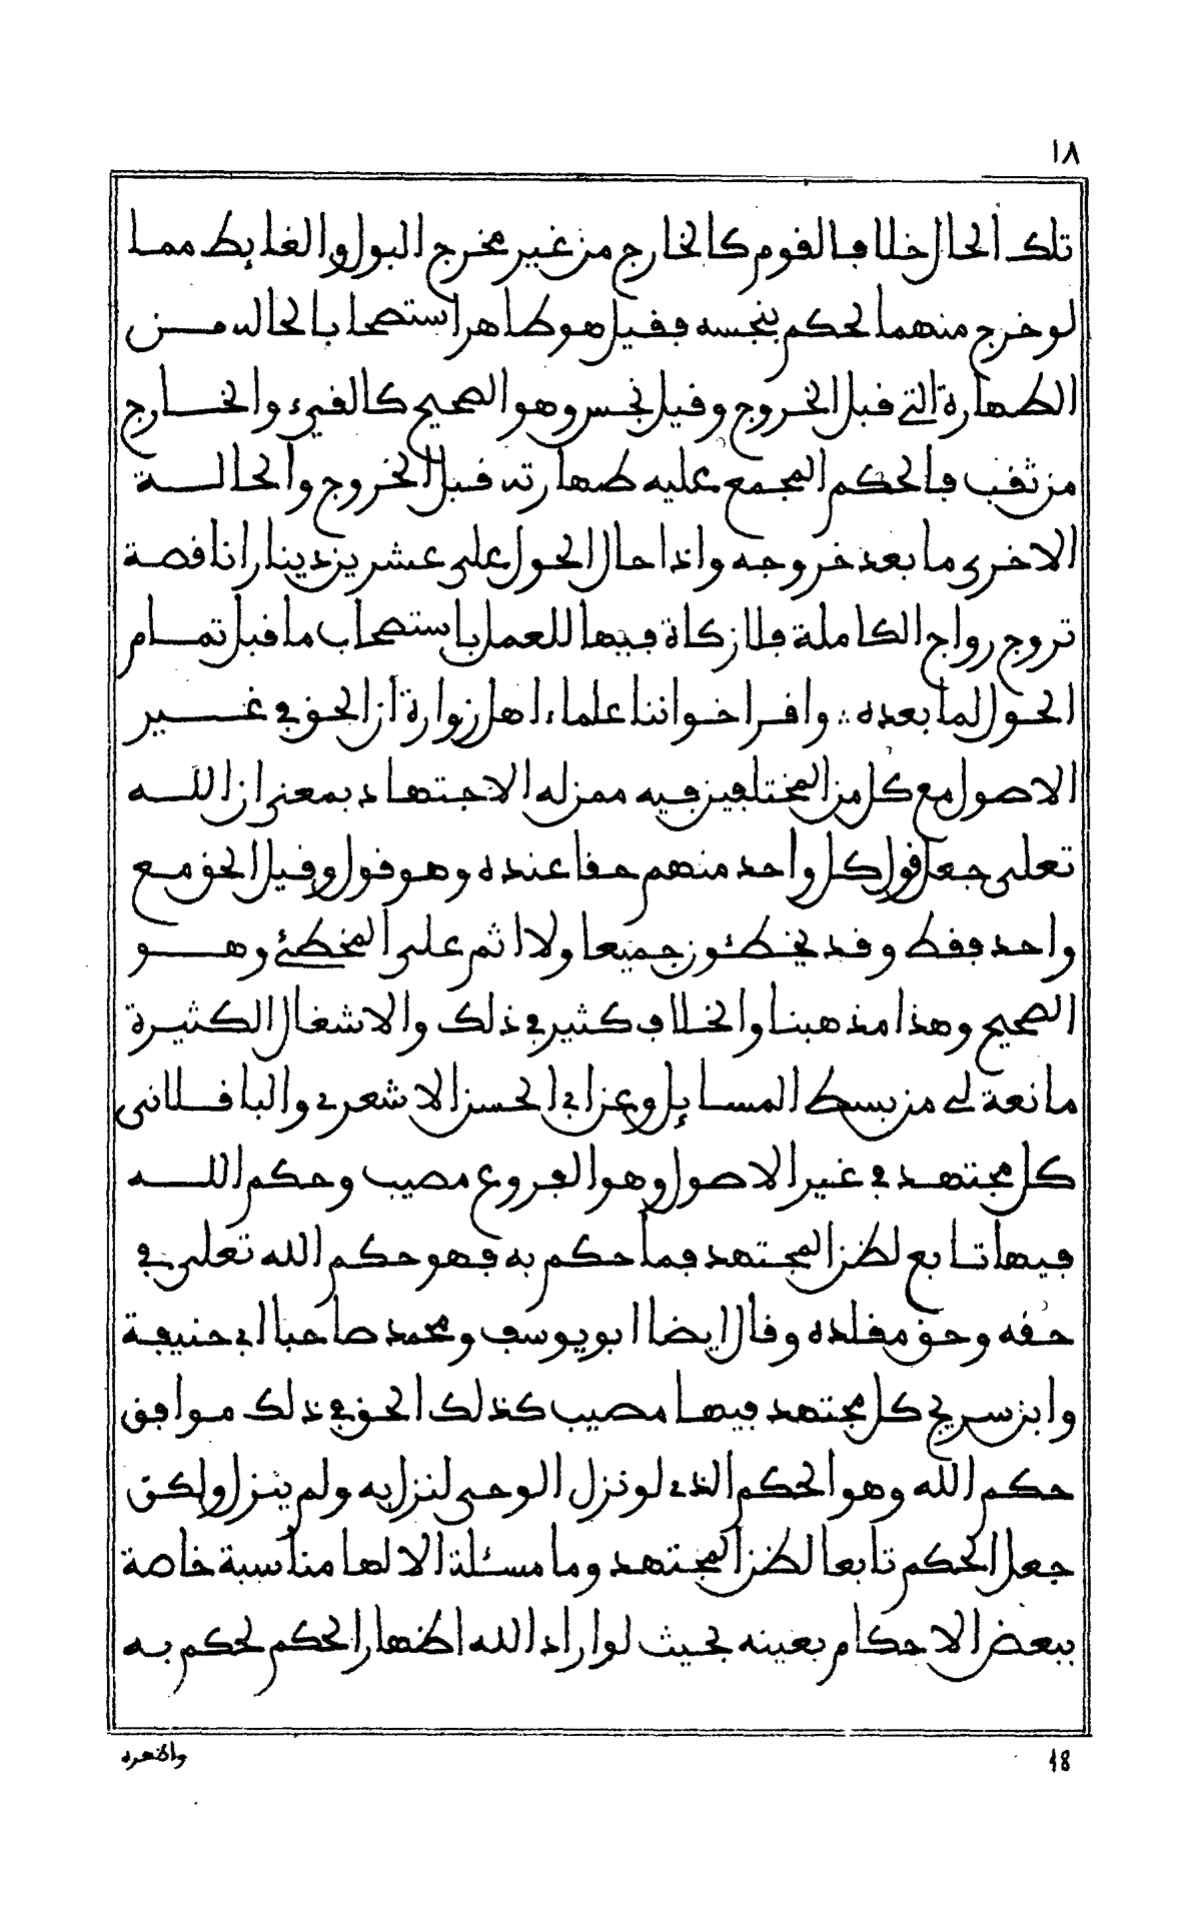 ١٨
تلك الحال خلافا لقوم كالخارج من غير مخرج البول والغايط مما
لو خرج منهما لحكم بنجسه فقيل هو طاهر استصحابا لحاله من
الطهارة التي قبل الخروج وقيل نجس وهو الصحيح كالقيء والخارج
من ثقب فالحكم المجمع عليه طهارته قبل الخروج والحالة
الاخرى ما بعد خروجه واذا حال الحول على عشرين دينارا ناقصة
تروج رواج الكاملة فلا زكاة فيها للعمل باستصحاب ما قبل تمام
الحول لما بعده ∴ واقر اخواننا علماء اهل زوارة ان الحق في غير
الاصول مع كل من المختلفين فيه ممن له الاجتهاد بمعنى ان الله
تعلى جعل قول كل واحد منهم حقا عنده وهو قول وقيل الحق مع
واحد فقط وقد يخطئون جميعا ولا اثم على المخطئ وهو
الصحيح وهذا مذهبنا والخلاف كثير في ذلك والاشغال الكثيرة
مانعة لي من بسط المسايل وعن ابي الحسن الاشعري والباقلاني
كل مجتهد في غير الاصول وهو الفروع مصيب وحكم الله
فيها تابع لظن المجتهد فما حكم به فهو حكم الله تعلى في
حقه وحق مقلده وقال ايضا ابو يوسف ومحمد صاحبا ابي حنيفة
وابن سريج كل مجتهد فيها مصيب كذلك الحق في ذلك موافق
حكم الله وهو الحكم الذي لو نزل الوحي لنزل به ولم ينزل ولكن
جعل الحكم تابعا لظن المجتهد وما مسئلة الا لها مناسبة خاصة
ببعض الاحكام بعينه بحيث لو اراد الله اظهار الحكم لحكم به
18